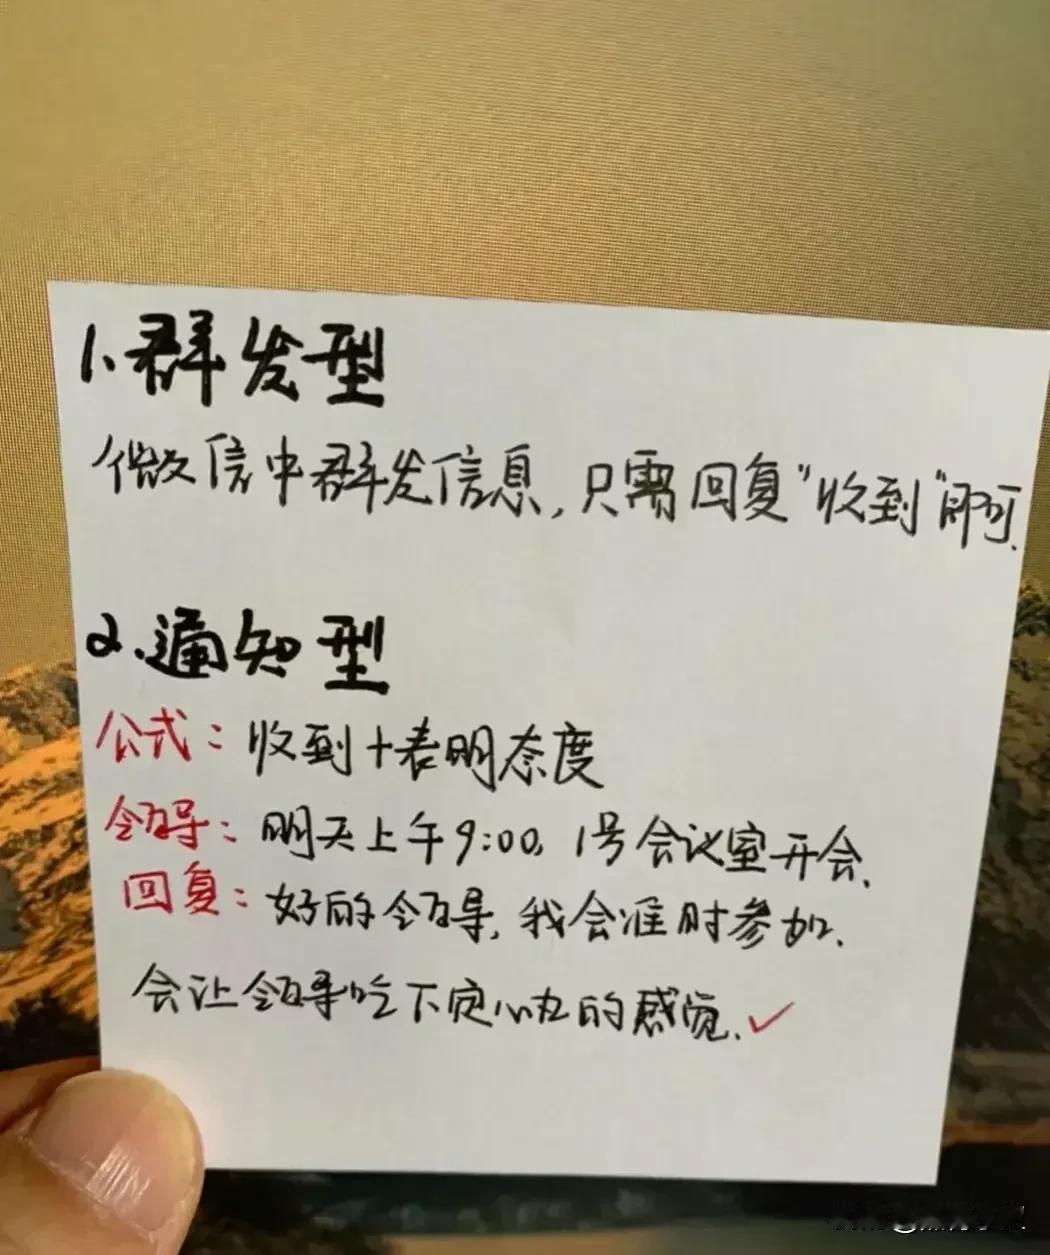 1.群发型
微信中群发信息,只需回复"收到"即可.
2.通知型
公式:收到+表明态度
领导:明天上午9:00,1号会议室开会.
回复:好的领导,我会准时参加.
会让领导吃下定心丸的感觉.✓